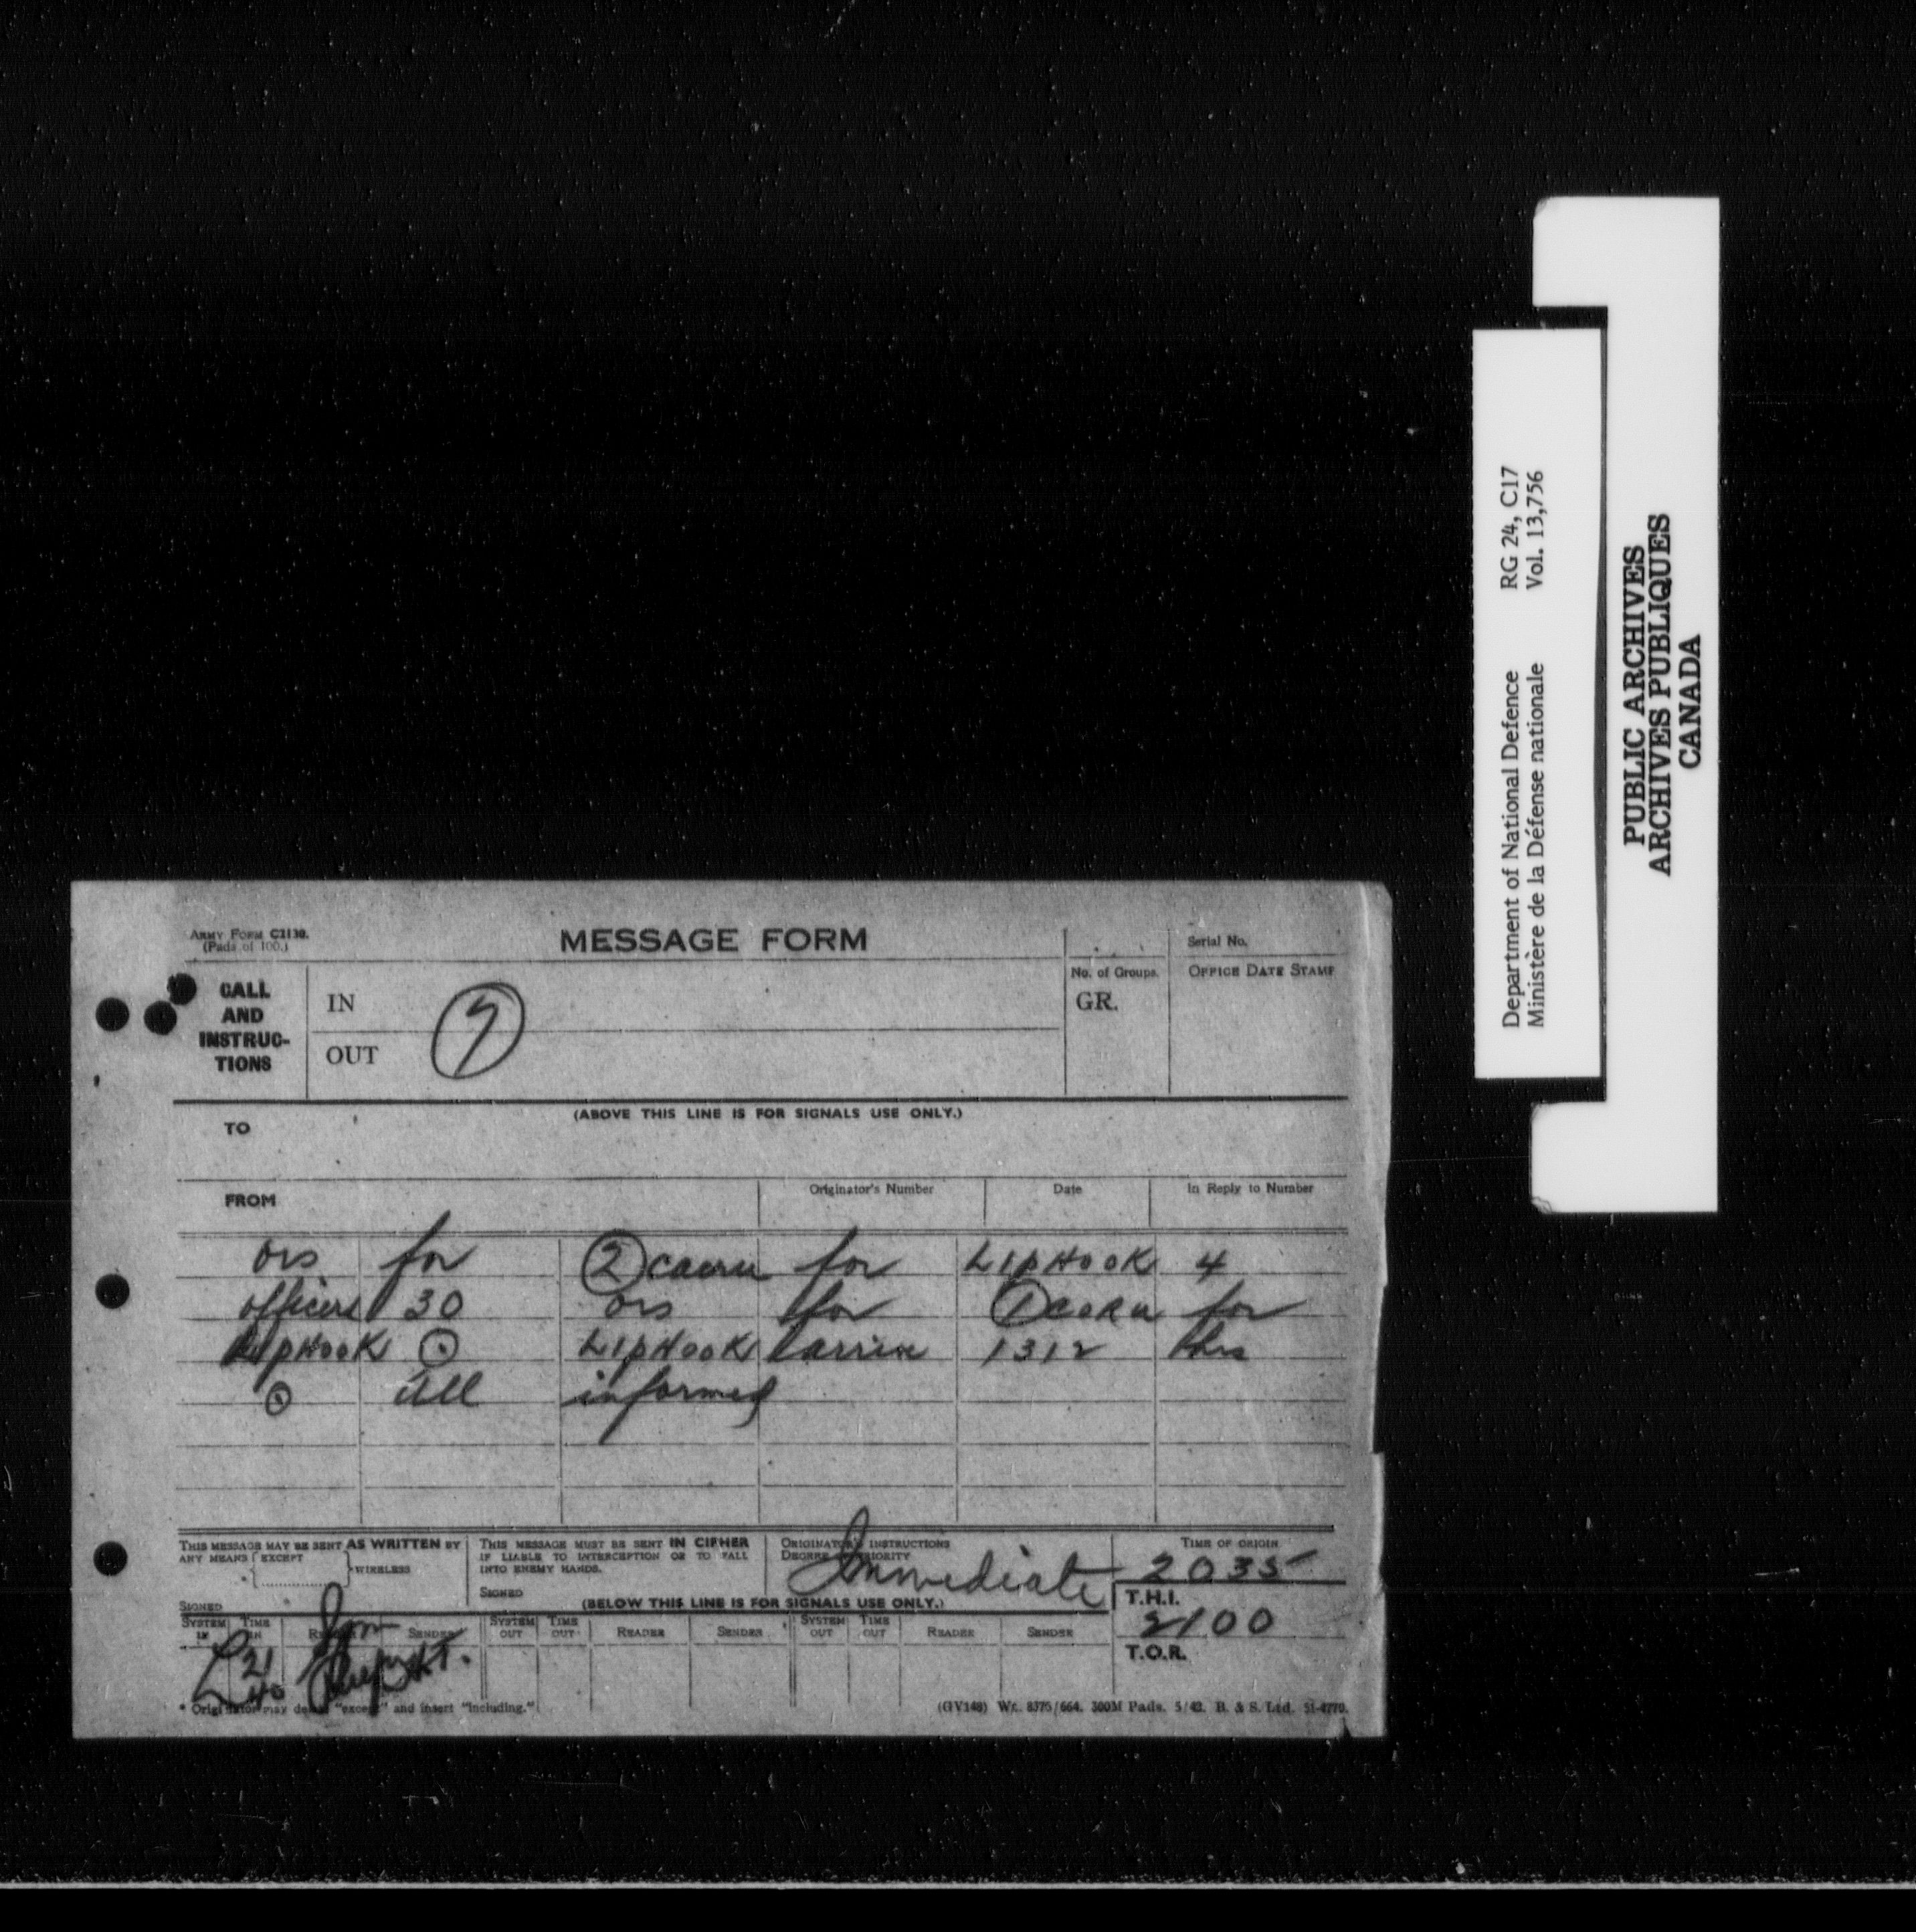 ARMY FORM C2130.
(Pads of 100.)
MESSAGE FORM
Serial No.
CALL AND INSTRUC-TIONS
IN
OUT
No. of Groups.
GR.
OFFICE DATE STAMP
(ABOVE THIS LINE IS FOR SIGNALS USE ONLY.)
TO
FROM
Originator's Number
Date
In Reply to Number
ors for (2) for LIPHOOK 4
officers 30 ors for (1) for
LIPHOOK ⊙ LIPHOOK 1312 hrs
⊙ all informed
THIS MESSAGE MAY BE SENT AS WRITTEN BY
ANY MEANS EXCEPT WIRELESS
SIGNED
THIS MESSAGE MUST BE SENT IN CIPHER
IF LIABLE TO INTERCEPTION OR TO FALL
INTO ENEMY HANDS.
SIGNED
ORIGINATOR'S INSTRUCTIONS
DEGREE OF PRIORITY
Immediate
TIME OF ORIGIN
2035
T.H.I.
2100
T.O.R.
(BELOW THIS LINE IS FOR SIGNALS USE ONLY.)
SYSTEM IN TIME IN READER SENDER SYSTEM OUT TIME OUT READER SENDER SYSTEM OUT TIME OUT READER SENDER
21
40
* Originator may delete "except" and insert "including."
(GV148) Wt. 8375/664. 300M Pads. 5/42. B. & S. Ltd. 51-4770.
Department of National Defence RG 24, C17
Ministère de la Défense nationale Vol. 13,756
PUBLIC ARCHIVES
ARCHIVES PUBLIQUES
CANADA